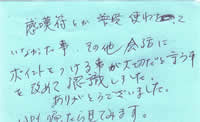 感嘆符とか普段使わなくって
いなかった事、その他会話に
ポイントをつける事が大切だと言う事
を改めて認識しました。
ありがとうございました。
帰ったら見てみます。